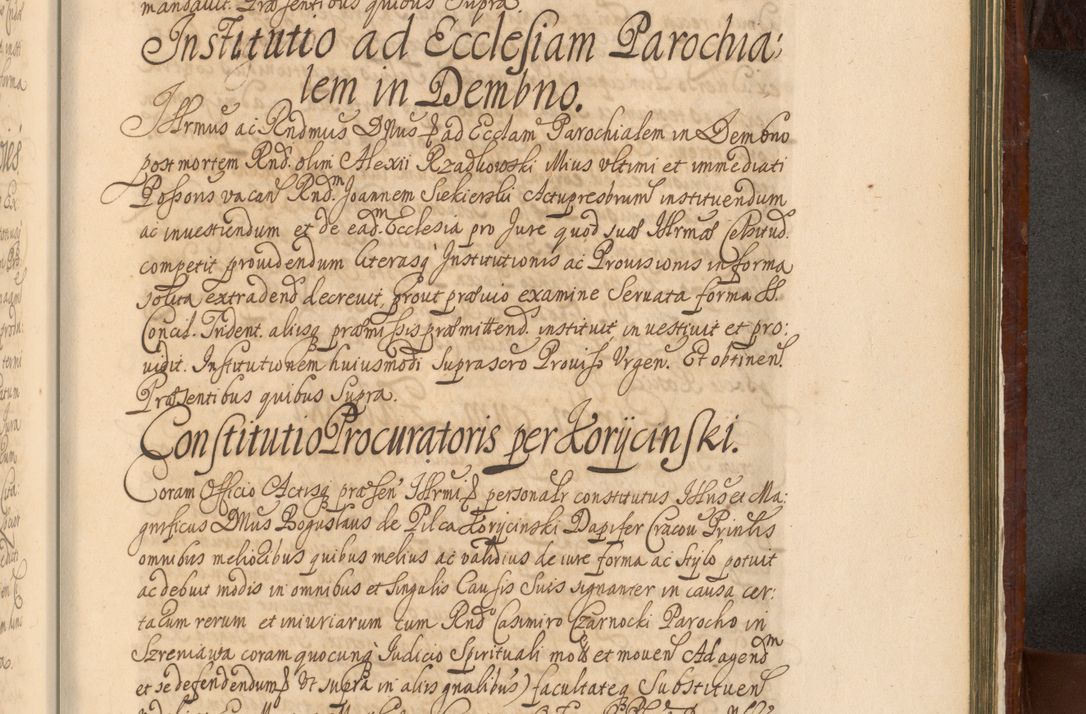 mandavit. Præsentibus quibus Supra.
Institutio ad Ecclesiam Parochia:
lem in Dembno.
Illrmus ac Rndmus Dnus & ad Ecclam Parochialem in Dembno
post mortem Rnd. olim Alexii Rzadkowski Illius vltimi et immediati
Possoris vacan Rndm. Joannem Siekierski Actupresbrum instituendum
ac investiendum et de eadm. Ecclesia pro Jure quod suæ Illrmæ Celsitud.
competit providendum literasq Institutionis ac Provisionis in forma
solita extradend decrevit, prout prævio examine Servata forma SS.
Concil. Trident. aliisq præmissis præmittend. instituit investivit et pro:
vidit. Institutionem huiusmodi Suprascro Proviso Vrgen. Et obtinen.
Præsentibus quibus Supra.
Constitutio Procuratoris per Korijcinski.
Coram Officio Actisq præsen Illrmi & personalr constitutus Illus et Ma:
gnificus Dnus Boguslaus de Pilca Korijcinski Dapifer Cracou Prinlis
omnibus melioribus quibus melius ac validius de iure forma ac stylo potuit
ac debuit modis in omnibus et singulis Causis Suis signanter in causa cer:
tarum rerum et iniuriarum cum Rnd Casimiro Czarnocki Parocho in
Szreniawa coram quocunq Iudicio Spirituali mota et moven Ad agendm
et se defendendum & Vt supra in aliis qualibus) facultateq Substituen